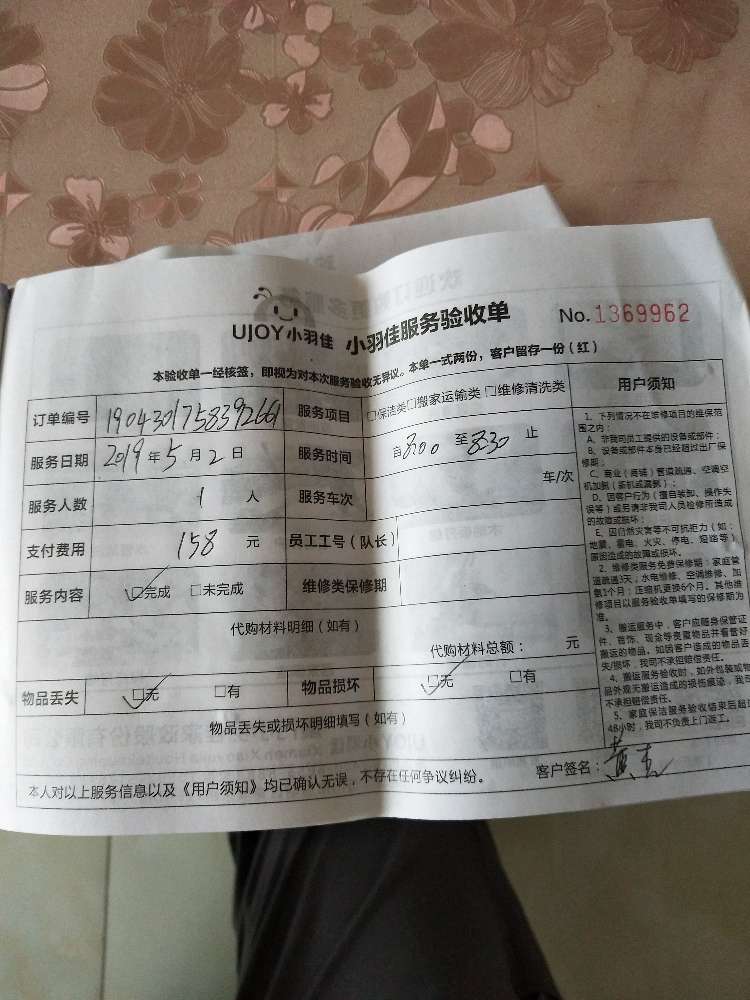 UJOY小羽佳 小羽佳服务验收单 No.1369962
本验收单一经核签，即视为对本次服务验收无异议。本单一式两份，客户留存一份（红）
订单编号 1904301758392661 服务项目 □保洁类□搬家运输类 □维修清洗类
服务日期 2019年5月2日 服务时间 自8:00 至8:30 止
服务人数 1 人 服务车次 车/次
支付费用 158 元 员工工号（队长）
服务内容 □完成 □未完成 维修类保修期
代购材料明细（如有）
代购材料总额： 元
物品丢失 □无 □有 物品损坏 □无 □有
物品丢失或损坏明细填写（如有）
本人对以上服务信息以及《用户须知》均已确认无误，不存在任何争议纠纷。 客户签名：黄
用户须知
1、下列情况不在维修项目的维保范
围之内：
A、非我司员工提供的设备或部件；
B、设备或部件本身已经超过出厂保
修期；
C、商业（商铺）管道疏通、空调空
机加氨（新机或漏氨）；
D、因客户行为（擅自装卸、操作失
误等）或另请非我司人员检修所造成
的故障或损坏；
E、因自然灾害等不可抗拒力（如：
地震、雷电、火灾、停电、短路等）
原因造成的故障或损坏。
2、维修类服务免费保修期：家庭管
道疏通3天，水电维修、空调维修、加
氨1个月；压缩机更换6个月，其他维
修项目以服务验收单填写的保修期为
准。
3、搬运服务中，客户应随身保管证
件、首饰、现金等贵重物品并看管好
搬运的物品。如因客户造成的物品丢
失/损坏，我司不承担赔偿责任。
4、搬运服务验收时，如外包装或物
品外观无搬运造成的损伤痕迹，我司
不承担赔偿责任。
5、家庭保洁服务验收结束后超过
48小时，我司不负责上门返工。